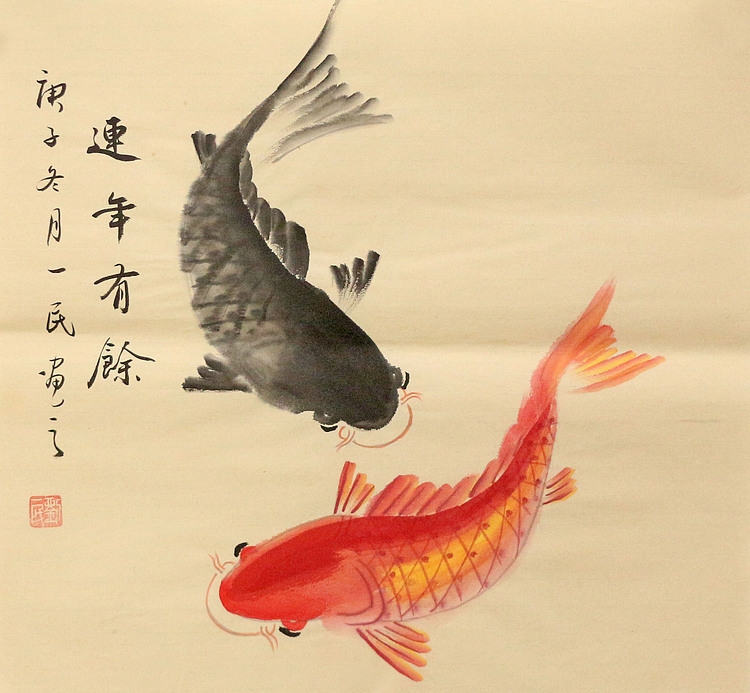 連年有餘
庚子冬月一民畫之